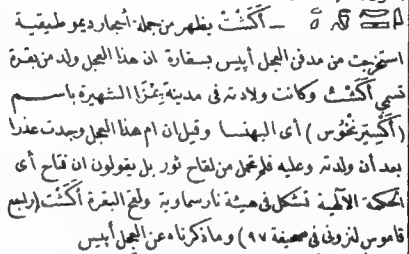 ـ أَكَنْتْ يظهر من جملة أحجار ديموطيقية
استخرجت من مدفن العجل أپيس بسقارة ان هذا العجل ولد من بقرة
تسمى أَكَنْتْ وكانت ولادته فى مدينة الشهيرة باسم
( أى البهنسا وقيل ان ام هذا العجل وجدت عذرا
بعد أن ولدته وعليه فلم تحمل من لقاح ثور بل يقولون ان فتاح أى
الحكمة الآلهية تشكل فى هيئة نار سماوية ولقح البقرة أَكَنْتْ (راجع
قاموس لنزونى فى صحيفة ٩٧) وما ذكرناه عن العجل أپيس